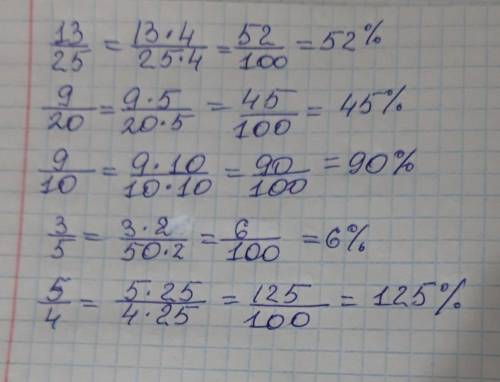 13/25 = 13·4/25·4 = 52/100 = 52%
9/20 = 9·5/20·5 = 45/100 = 45%
9/10 = 9·10/10·10 = 90/100 = 90%
3/5 = 3·2/50·2 = 6/100 = 6%
5/4 = 5·25/4·25 = 125/100 = 125%